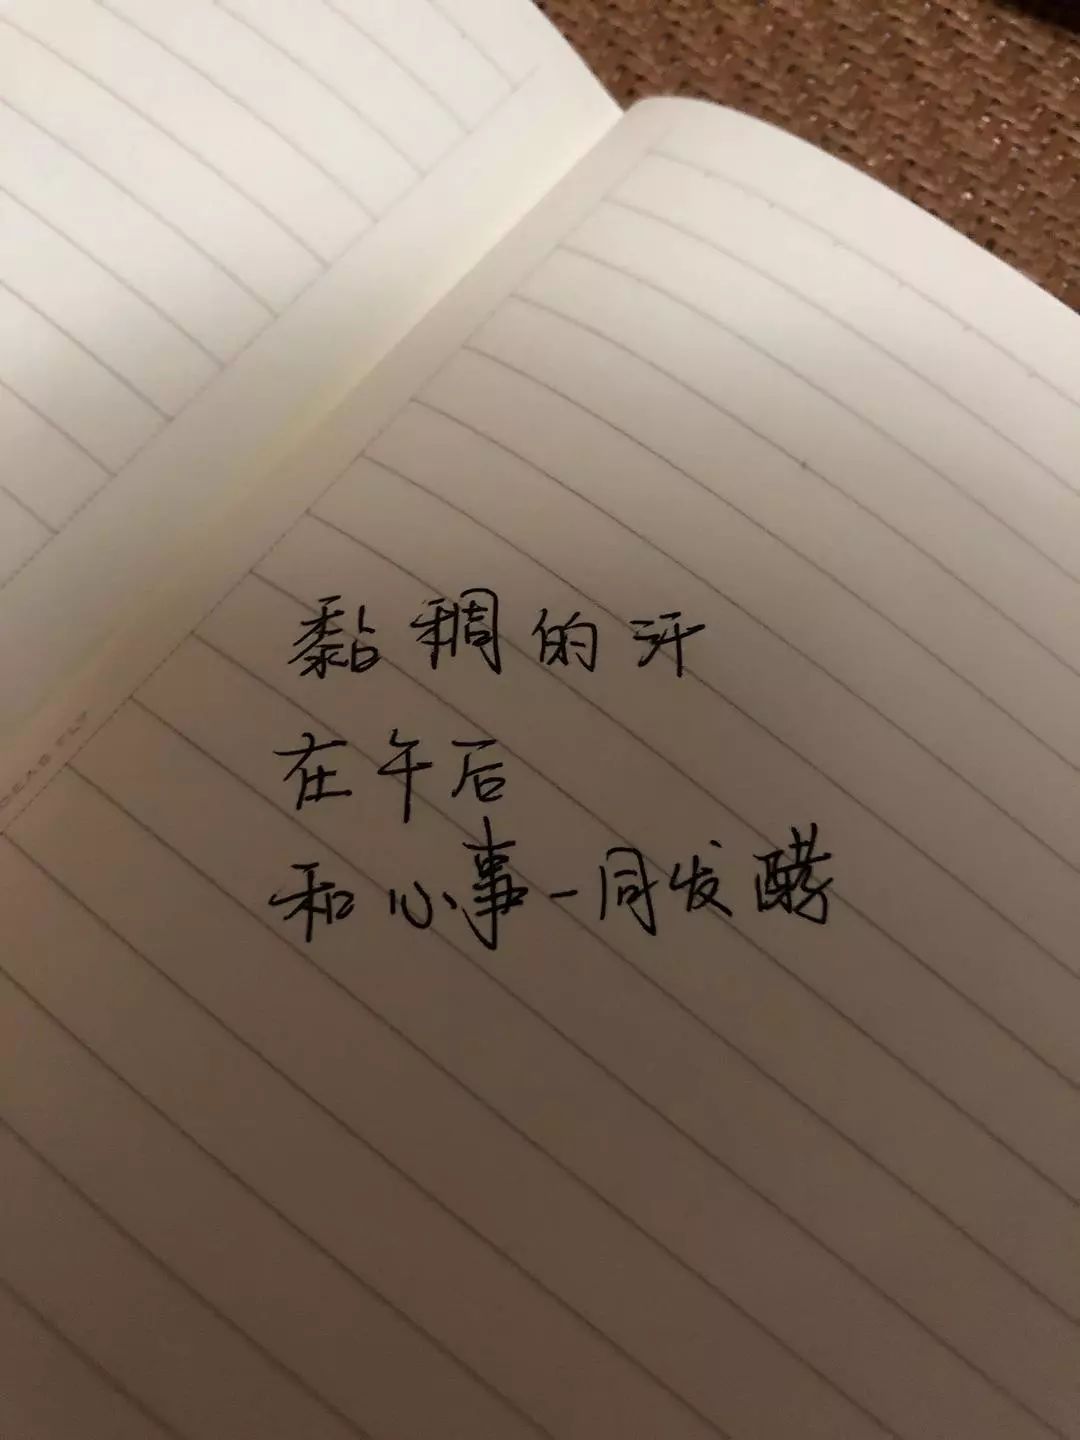 黏稠的汗
在午后
和心事一同发酵
IDEAS FLY